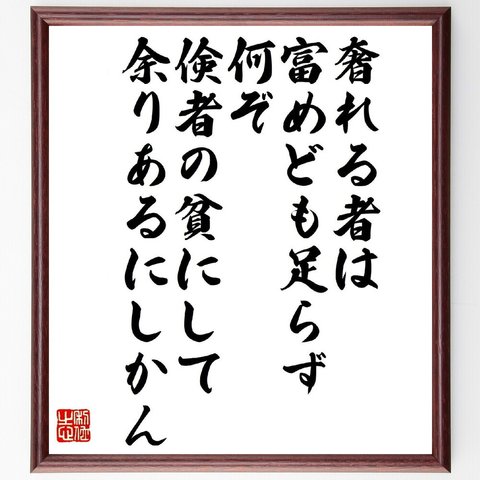 奢れる者は
富めども足らず
何ぞ
倹者の貧にして
余りあるにしかん